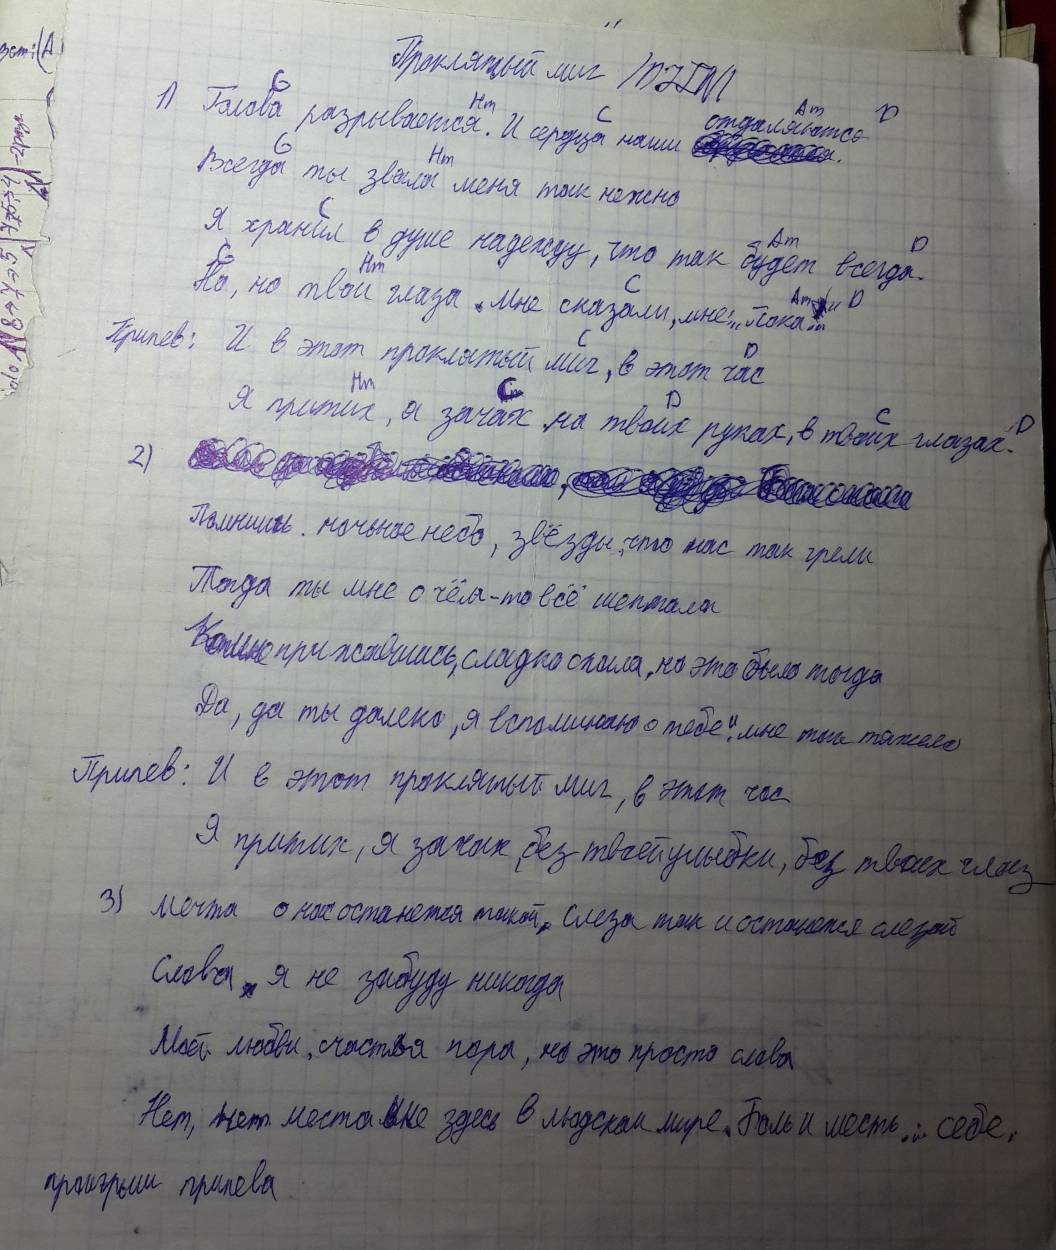 Проклятый миг
G Hm C Am D
1) Голова разрывается. И сердца наши отдаляются
G Hm
Всегда ты звала меня так нежно
C Am D
Я хранил в душе надежду, что так будет всегда.
G Hm C Am D
Но, но твои глаза. Мне сказали, мне: "Пока"
C D
Припев: И в этот проклятый миг, в этот час
Hm C D C D
Я притих, я зачах на твоих руках, в твоих глазах.
2)
Помнишь. ночное небо, звёзды, что нас так грели
Тогда ты мне о чём-то всё шептала
Ко мне прижавшись, сладко спала, но это было тогда
Да, да ты далеко, я вспоминаю о тебе, мне так тяжело
Припев: И в этот проклятый миг, в этот час
Я притих, я зачах, без твоей улыбки, без твоих глаз
3) Мечта о нас останется такой, слеза так и останется слезой
Слова, я не забуду никогда
Моей любви, счастья пора, но это просто слова
Нет, нет места мне здесь в людском мире. Боль и месть... себе.
проигрыш припева